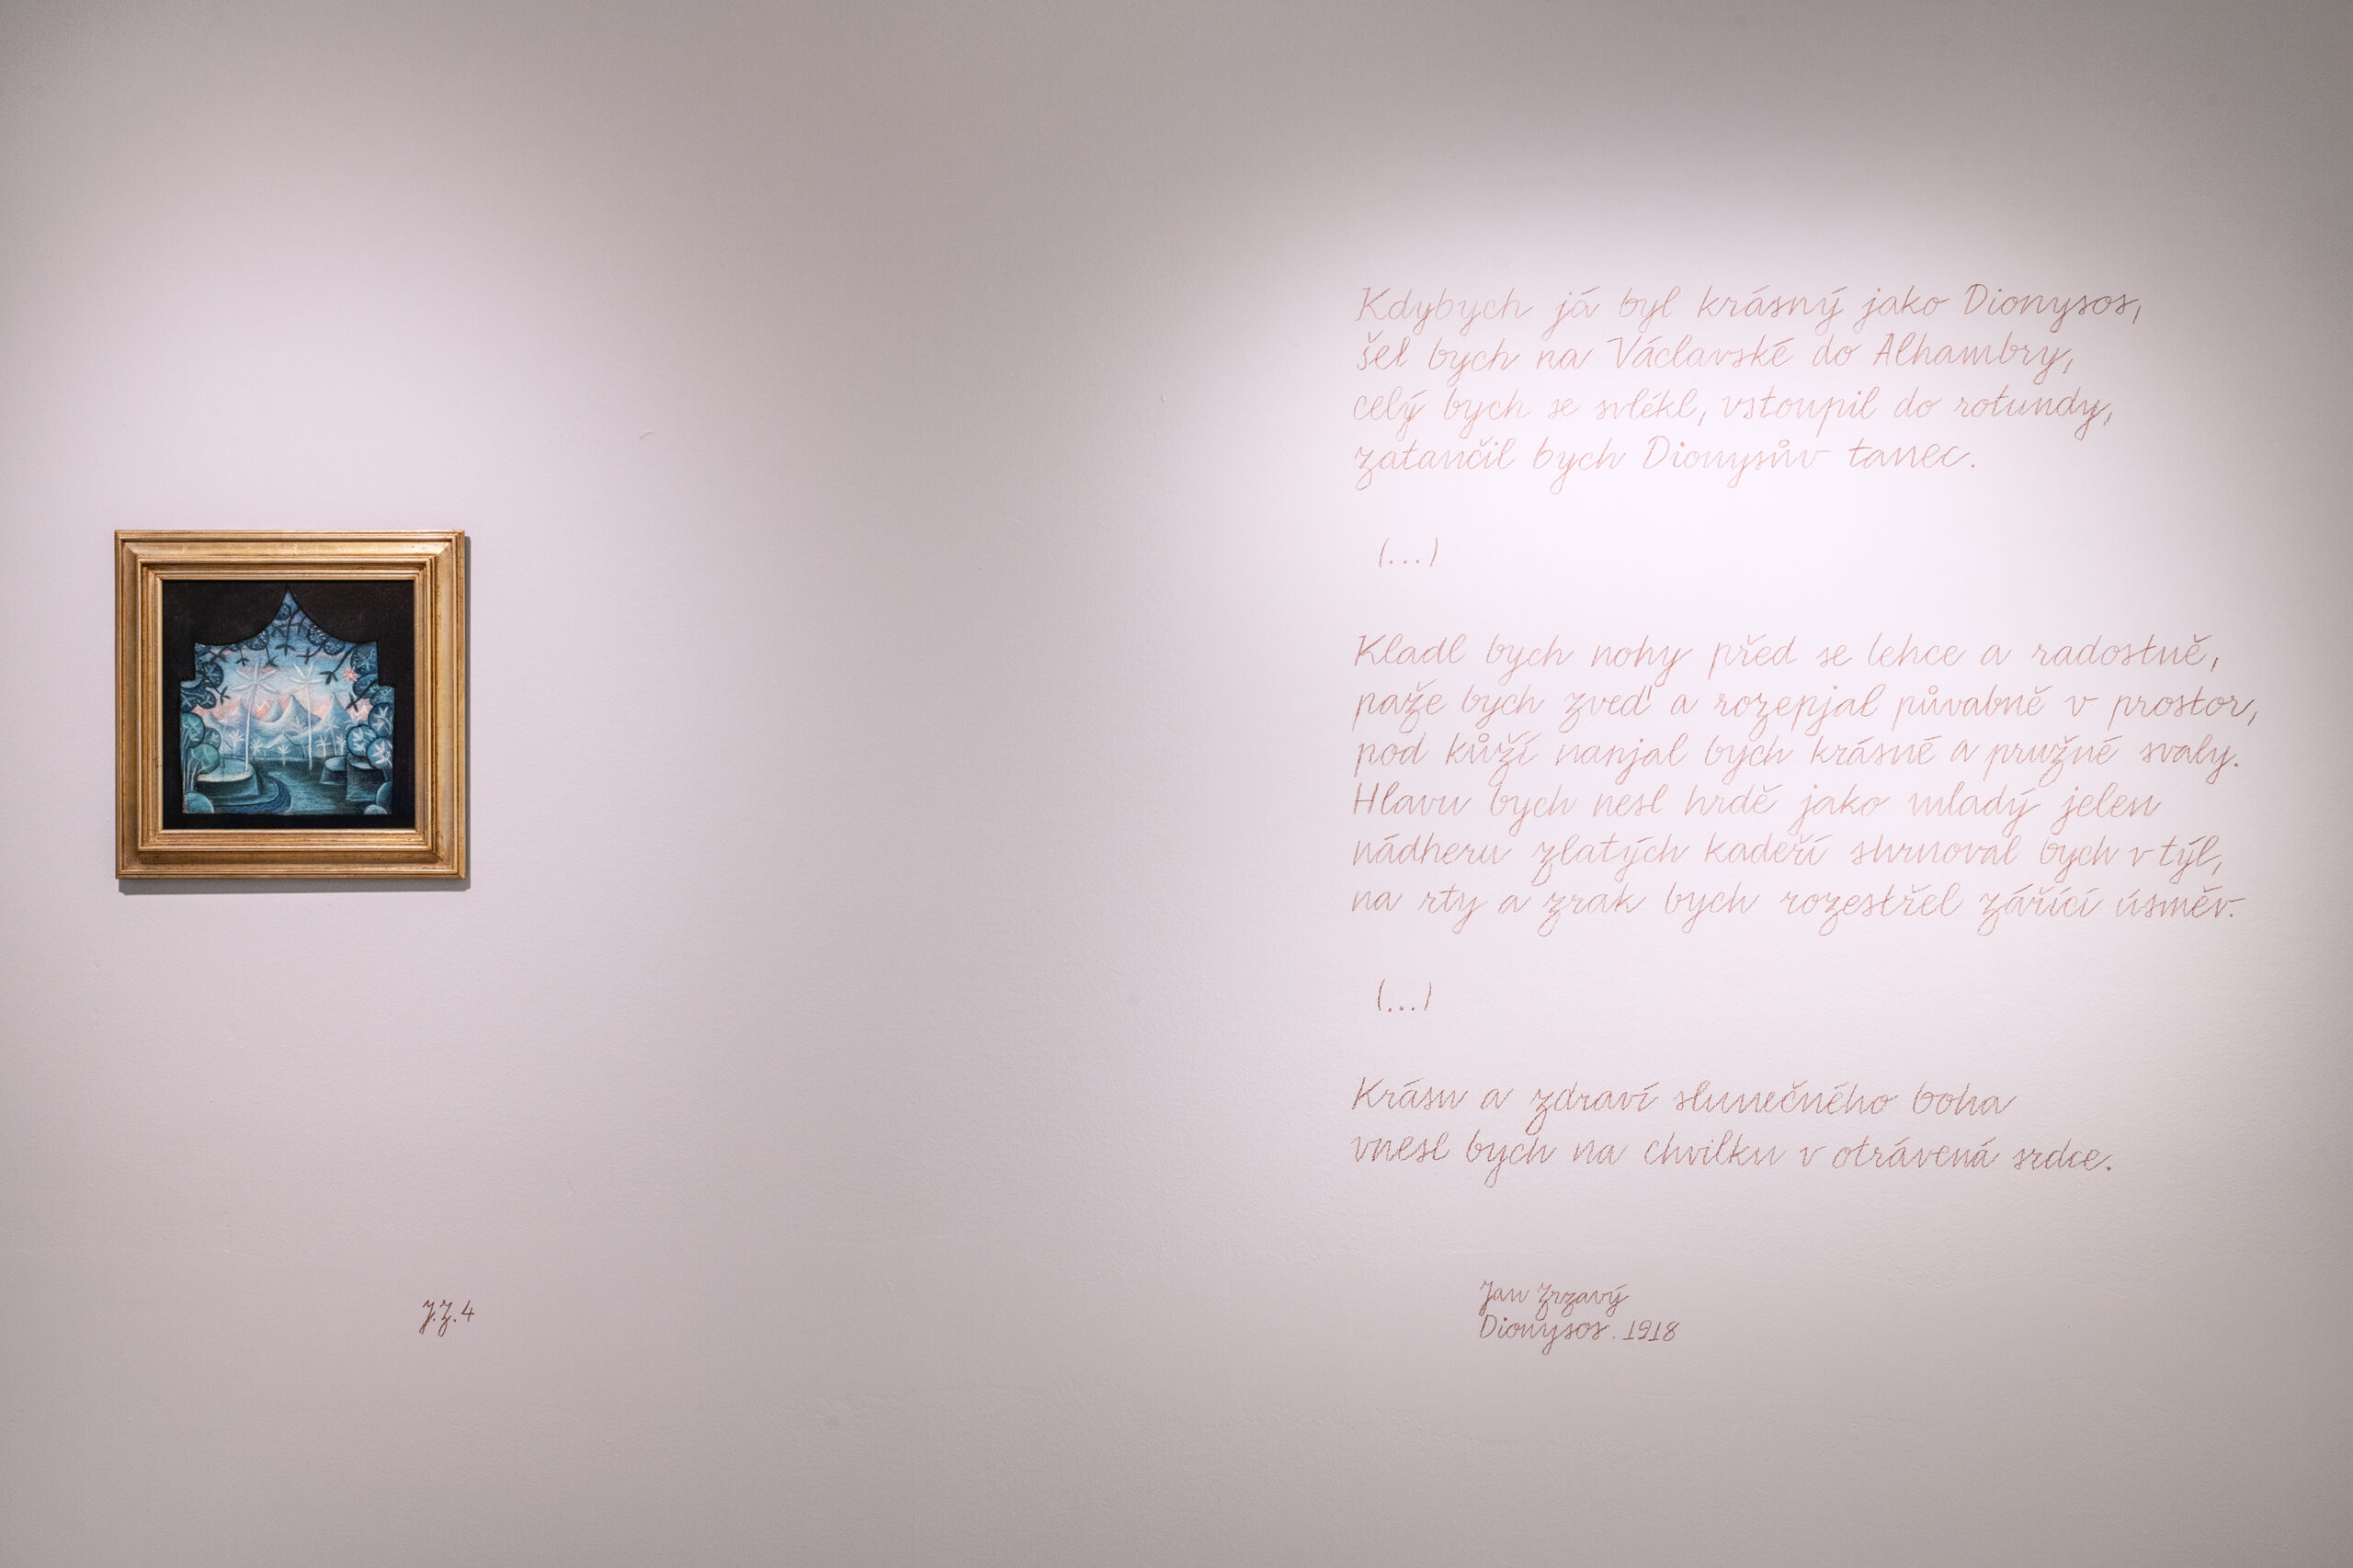 Kdybych já byl krásný jako Dionysos,
šel bych na Václavské do Alhambry,
celý bych se svlékl, vstoupil do rotundy,
zatančil bych Dionysův tanec.
(...)
Kladl bych nohy před se lehce a radostně,
paže bych zveď a rozepjal půvabně v prostor,
pod kůží napjal bych krásné a pružné svaly.
Hlavu bych nesl hrdě jako mladý jelen
nádheru zlatých kadeří shrnoval bych v týl,
na rty a zrak bych rozestřel zářící úsměv.
(...)
Krásu a zdraví slunečného boha
vnesl bych na chvilku v otrávená srdce.
Jan Zrzavý
Dionysos. 1918
J.Z.4